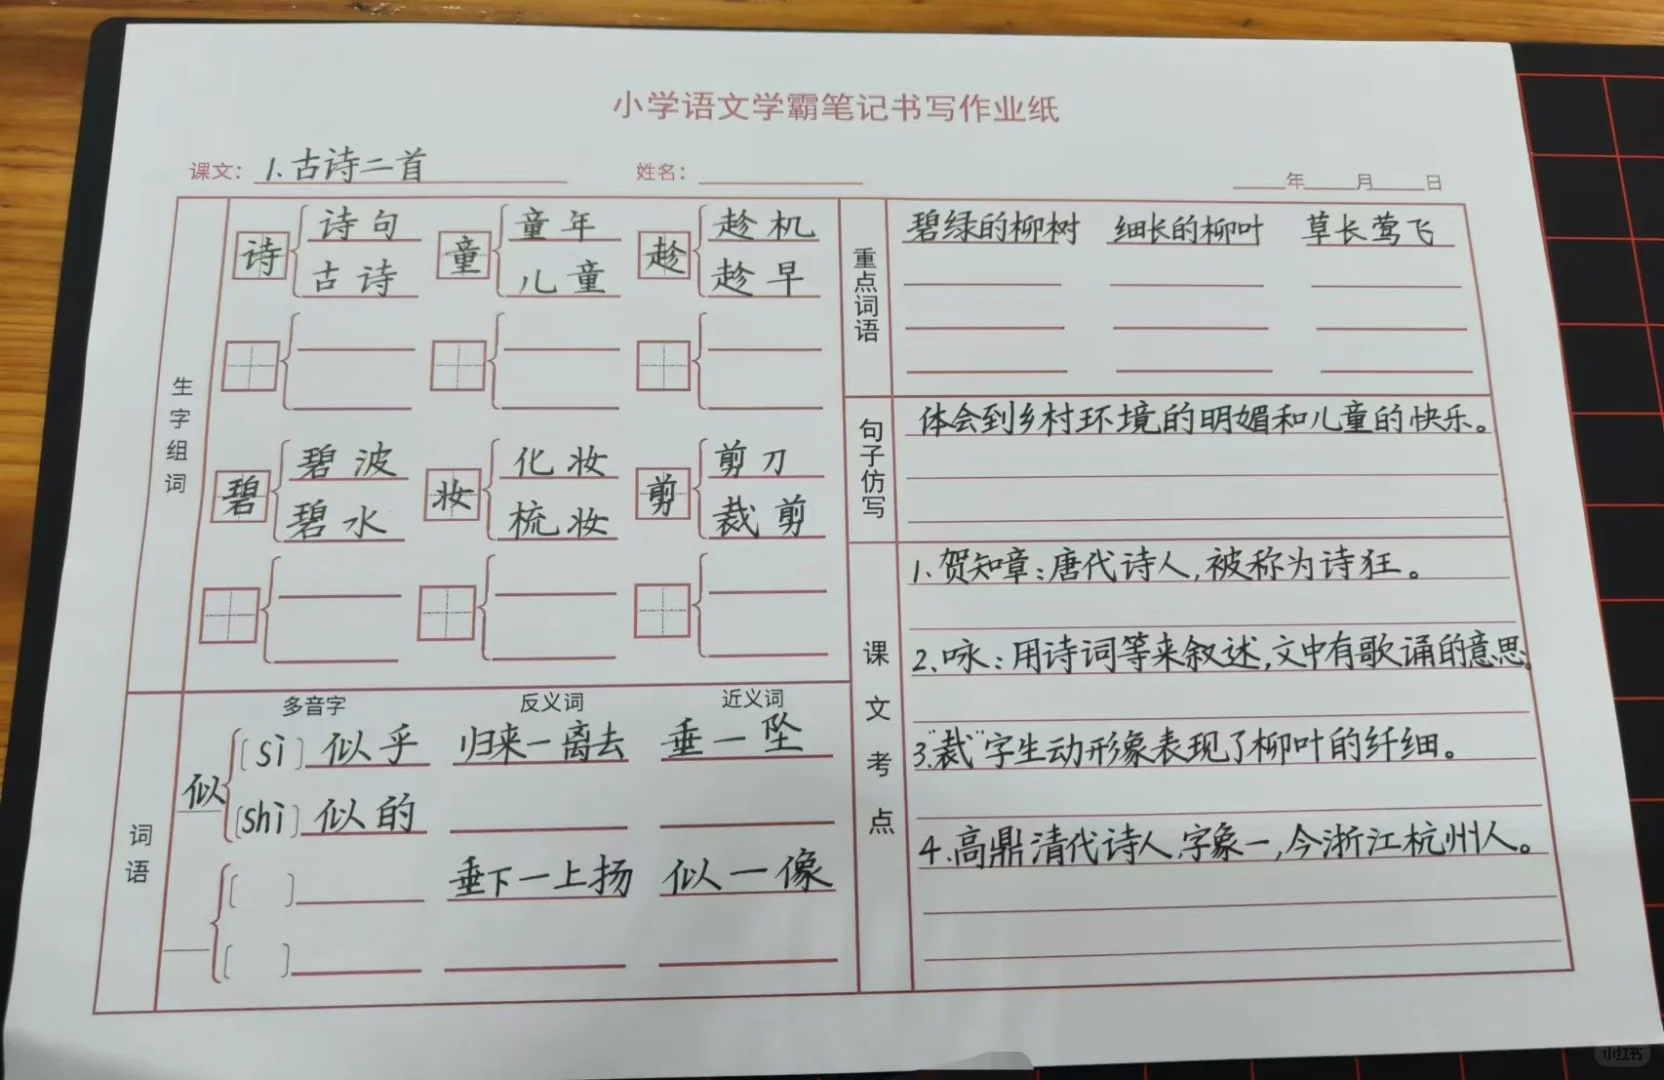 小学语文学霸笔记书写作业纸
课文: 1.古诗二首 姓名: 年 月 日
生字组词
诗 诗句 古诗
童 童年 儿童
趁 趁机 趁早
碧 碧波 碧水
妆 化妆 梳妆
剪 剪刀 裁剪
词语
多音字 反义词 近义词
似 [sì] 似乎 [shì] 似的
[ ]
[ ]
归来一离去
垂下一上扬
垂一坠
似一像
重点词语
碧绿的柳树 细长的柳叶 草长莺飞
句子仿写
体会到乡村环境的明媚和儿童的快乐。
课文考点
1.贺知章:唐代诗人,被称为诗狂。
2.咏:用诗词等来叙述,文中有歌诵的意思。
3."裁"字生动形象表现了柳叶的纤细。
4.高鼎清代诗人,字象一,今浙江杭州人。
小红书